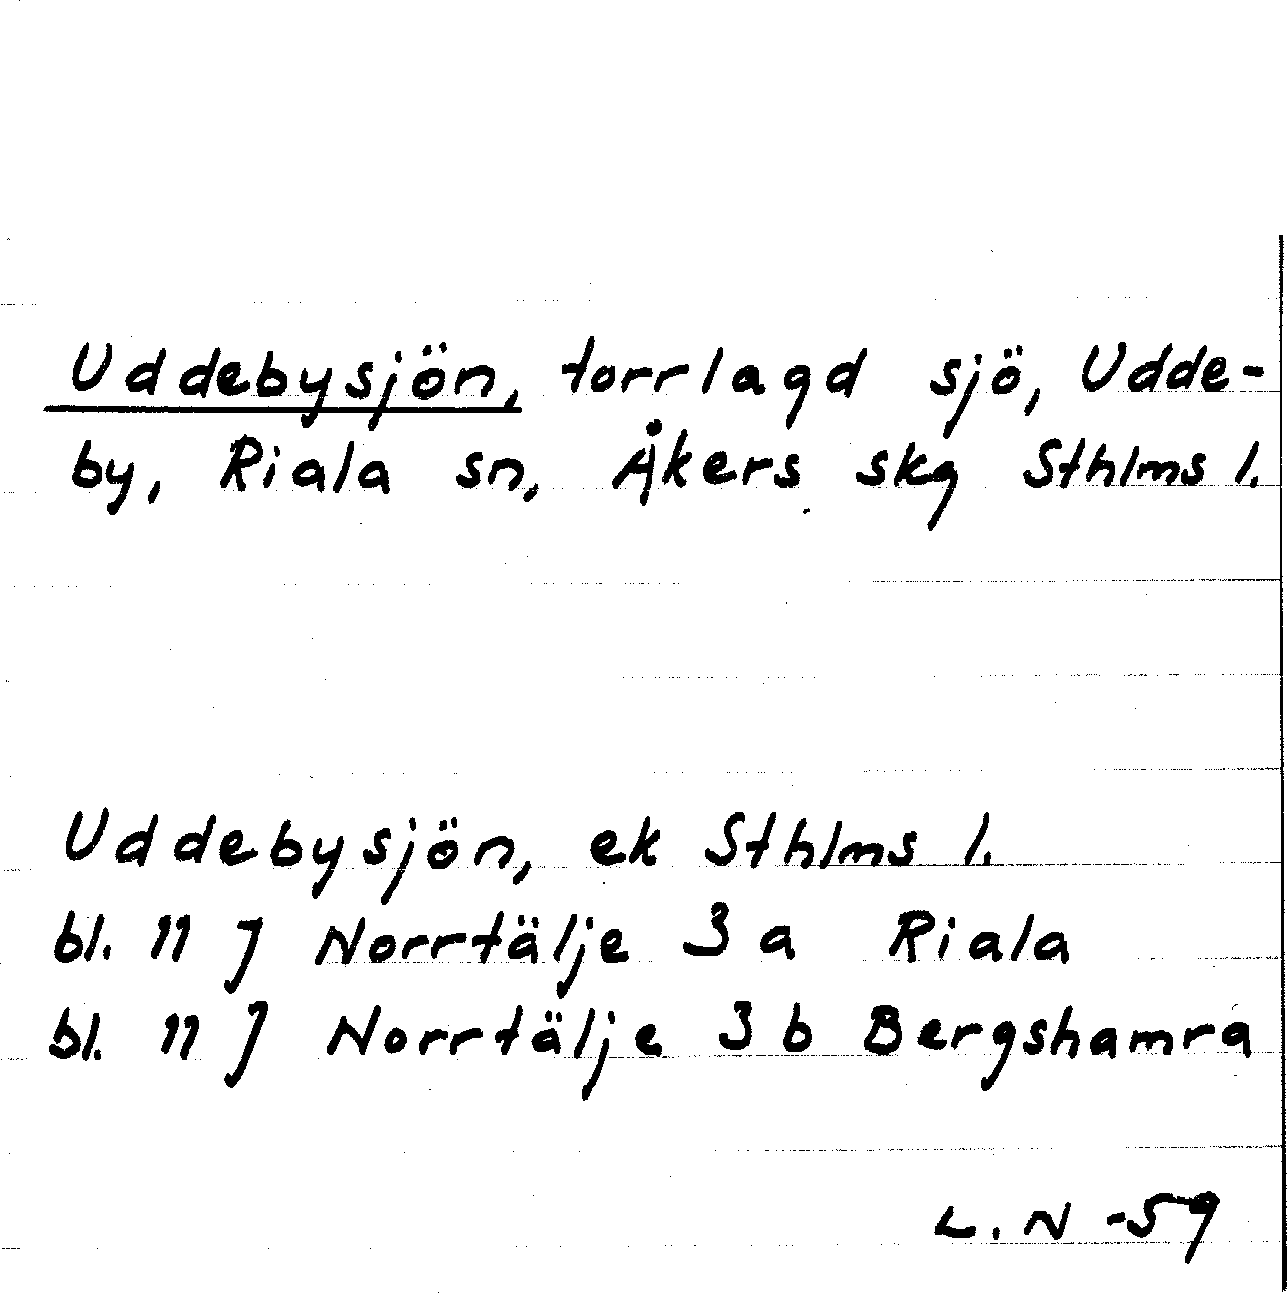 Uddebysjön, torrlagd sjö, Udde-
by, Riala sn, Åkers skg Sthlms l.
Uddebysjön, ek Sthlms l.
bl. 11 J Norrtälje 3 a Riala
bl. 11 J Norrtälje 3 b Bergshamra
L. N -59